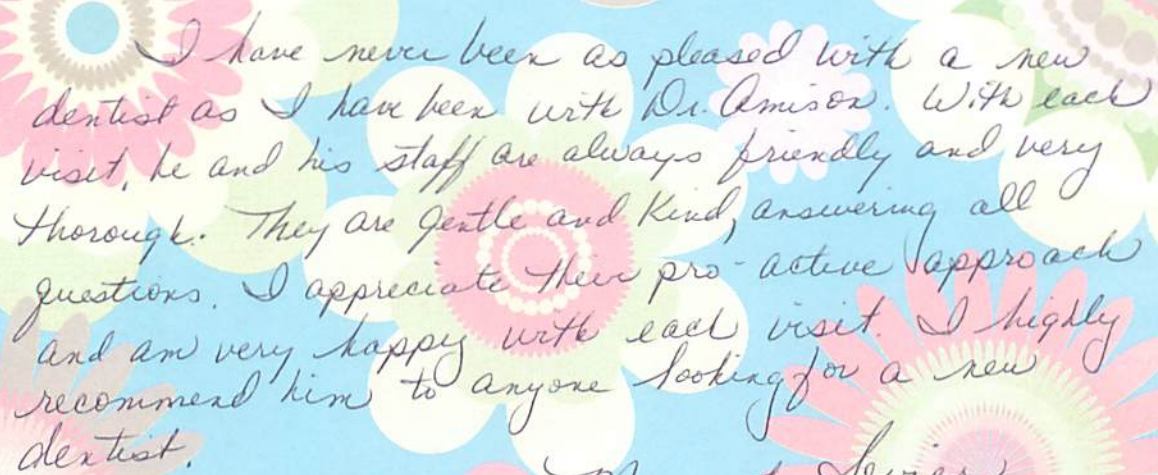 I have never been as pleased with a new
dentist as I have been with Dr. Amison. With each
visit, he and his staff are always friendly and very
thorough. They are gentle and kind, answering all
questions. I appreciate their pro-active approach
and am very happy with each visit. I highly
recommend him to anyone looking for a new
dentist.